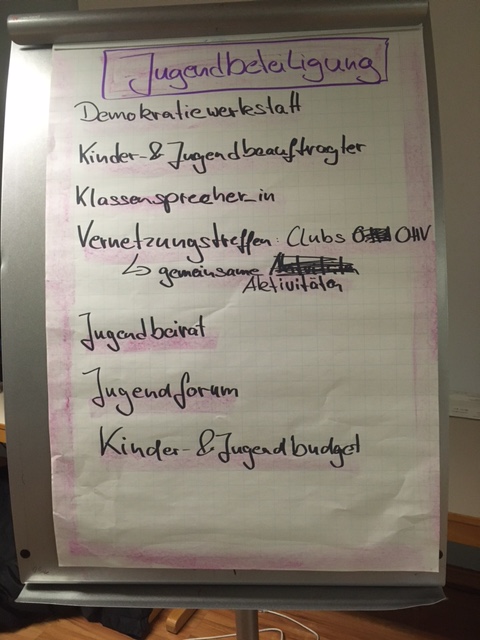 Jugendbeteiligung
Demokratiewerkstatt
Kinder- & Jugendbeauftragter
Klassensprecher_in
Vernetzungstreffen: Clubs OHV
↳ gemeinsame
Aktivitäten
Jugendbeirat
Jugendforum
Kinder- & Jugendbudget